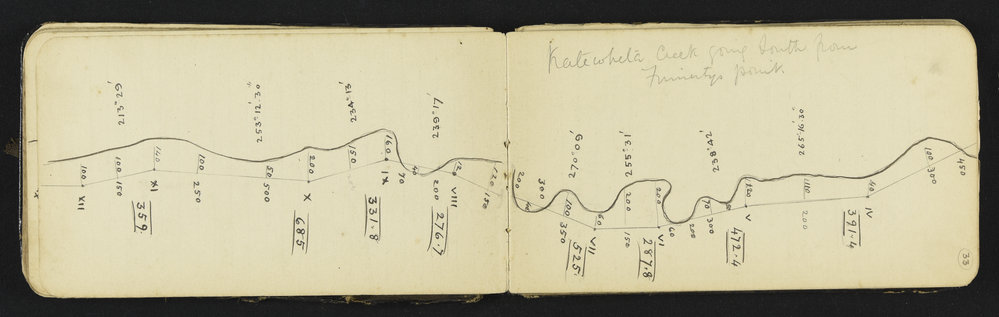 Creek going South from
point.
33
213° 29'
253° 12' 30"
234° 13'
100
100
150
140
100
250
50
500
200
150
160
70
40
200
120
120
150
XII
XI
359.
X
685
IX
331.8
VIII
276.7
270° 09'
255° 31'
238° 42'
265° 16' 30"
200
300
40
100
350
60
200
150
200
60
200
70
300
50
120
110
200
40
100
300
450
VII
525.
VI
287.8
V
472.4
IV
391.4